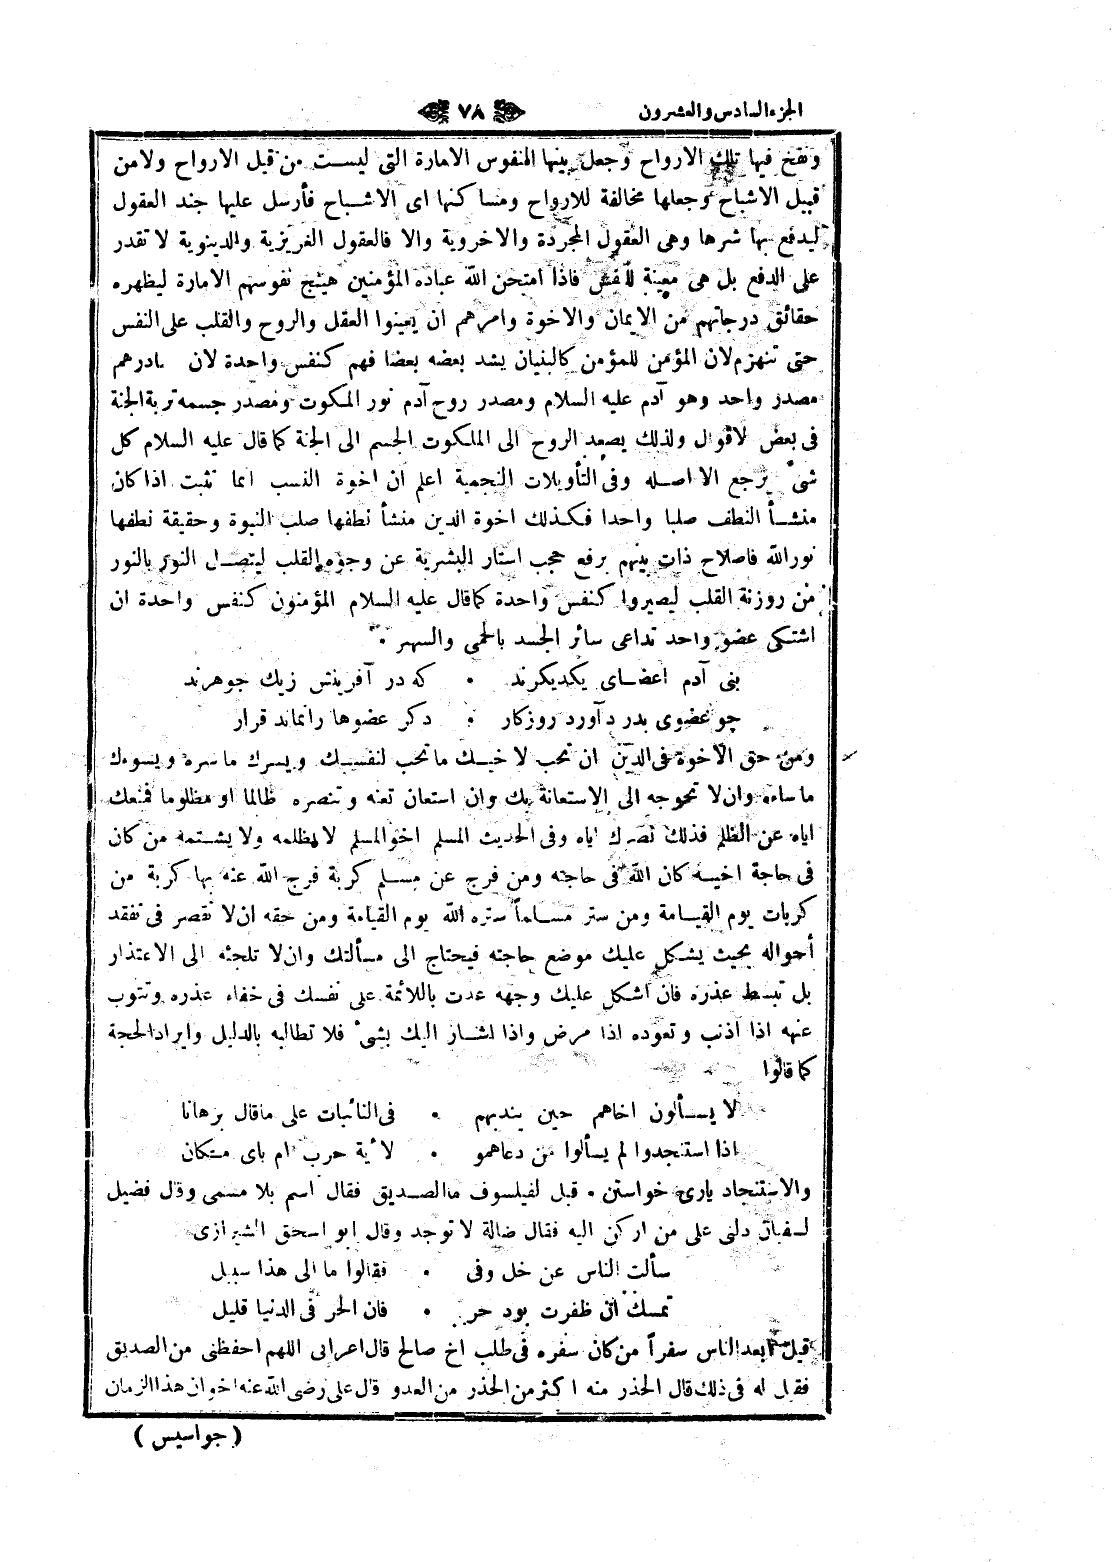 الجزء السادس والعشرون
٧٨
ونفخ فيها تلك الارواح وجعل بينها النفوس الامارة التى ليست من قبل الارواح ولا من
قبيل الاشباح وجعلها مخالفة للارواح ومساكنها اى الاشباح فأرسل عليها جند العقول
ليدفع بها شرها وهى العقول المجردة والاخروية والا فالعقول الغريزية والدينوية لا تقدر
على الدفع بل هى معينة للنفس فاذا امتحن الله عباده المؤمنين هيّج نفوسهم الامارة ليظهره
حقائق درجاتهم من الايمان والاخوة وامرهم ان يعينوا العقل والروح والقلب على النفس
حتى تنهزم لان المؤمن للمؤمن كالبنيان يشد بعضه بعضا فهم كنفس واحدة لان مادرهم
مصدر واحد وهو آدم عليه السلام ومصدر روح آدم نور المكوت ومصدر جسمه تربة الجنة
فى بعض لاقوال ولذلك يصعد الروح الى الملكوت الجسم الى الجنة كما قال عليه السلام كل
شئ يرجع الا اصله وفى التأويلات النجمية اعلم ان اخوة النسب انما تثبت اذا كان
منشأ النطف صلبا واحدا فكذلك اخوة الدين منشأ نطفها صلب النبوة وحقيقة نطفها
نورالله فاصلاح ذات بينهم برفع حجب استار البشرية عن وجوه القلب ليتصل النور بالنور
من روزنة القلب ليصيروا كنفس واحدة كما قال عليه السلام المؤمنون كنفس واحدة ان
اشتكى عضو واحد تداعى سائر الجسد بالحمى والسهر
بنى آدم اعضاى يكديكرند • كه در آفرينش زيك جوهرند
چو عضوى بدرد آورد روزكار • دكر عضوها را نماند قرار
ومن حق الاخوة فى الدين ان تحب لاخيك ما تحب لنفسك ويسرك ما سره ويسوءك
ما ساءه وان لا تحوجه الى الاستعانة بك وان استعان تعنه وتنصره ظالما او مظلوما فمنعك
اياه عن الظلم فذلك نصرك اياه وفى الحديث المسلم اخو المسلم لا يظلمه ولا يشتمه من كان
فى حاجة اخيه كان الله فى حاجته ومن فرج عن مسلم كربة فرج الله عنه بها كربة من
كربات يوم القيامة ومن ستر مسلماً ستره الله يوم القيامة ومن حقه ان لا تقصر فى تفقد
أحواله بحيث يشكل عليك موضع حاجته فيحتاج الى مسألتك وان لا تلجئه الى الاعتذار
بل تبسط عذره فان اشكل عليك وجهه عدت باللائمة على نفسك فى خفاء عذره وتتوب
عنه اذا أذنب وتعوده اذا مرض واذا اشار اليك بشئ فلا تطالبه بالدليل وايراد الحجة
كما قالوا
لا يسألون اخاهم حين يندبهم • فى النائبات على ما قال برهانا
اذا استنجدوا لم يسألوا من دعاهمو • لأية حرب ام باى متكان
والاستنجاد يارى خواستن • قبل لفيلسوف ما الصديق فقال اسم بلا مسمى وقال فضيل
لسفيان دلنى على من اركن اليه فقال ضالة لا توجد وقال ابو اسحق الشيرازى
سألت الناس عن خل وفى • فقالوا ما الى هذا سبيل
تمسك ان ظفرت بود حر • فان الحر فى الدنيا قليل
قيل ابعد الناس سفراً من كان سفره فى طلب اخ صالح قال اعرابى اللهم احفظنى من الصديق
فقبل له فى ذلك قال الحذر منه اكثر من الحذر من العدو قال على رضى الله عنه اخوان هذا الزمان
( جواسيس )